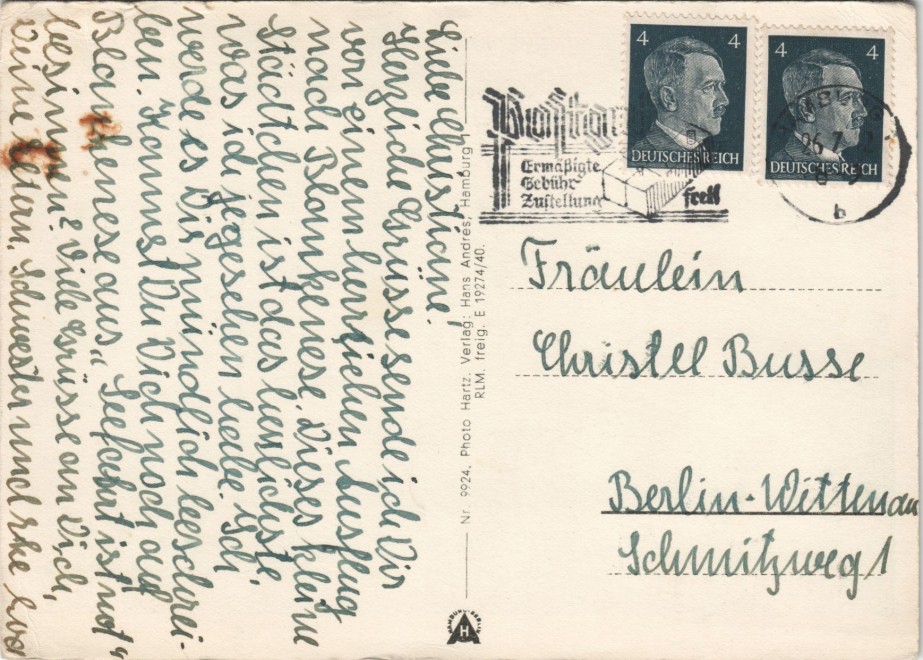 Liebe Christine!
Herzliche Grüsse sende ich Dir
von einem herrlichen Ausflug
nach Blankenese. Dieses kleine
Städtchen ist das lieblichste,
was ich je gesehen habe. Ich
werde es Dir mündlich beschrei-
ben. Kannst Du Dich noch auf
Blankenese aus „Seefahrt ist not"
besinnen? Viele Grüsse an Dich,
Deine Eltern, Schwester und
Nr. 9924. Photo Hartz. Verlag: Hans Andres, Hamburg 1
RLM. freig. E 19274/40.
4 4
DEUTSCHES REICH
4 4
DEUTSCHES REICH
Ermäßigte
Gebühr
Zustellung
frei!
b
Fräulein
Christel Busse
Berlin-Wittenau
Schmitzweg 1
H